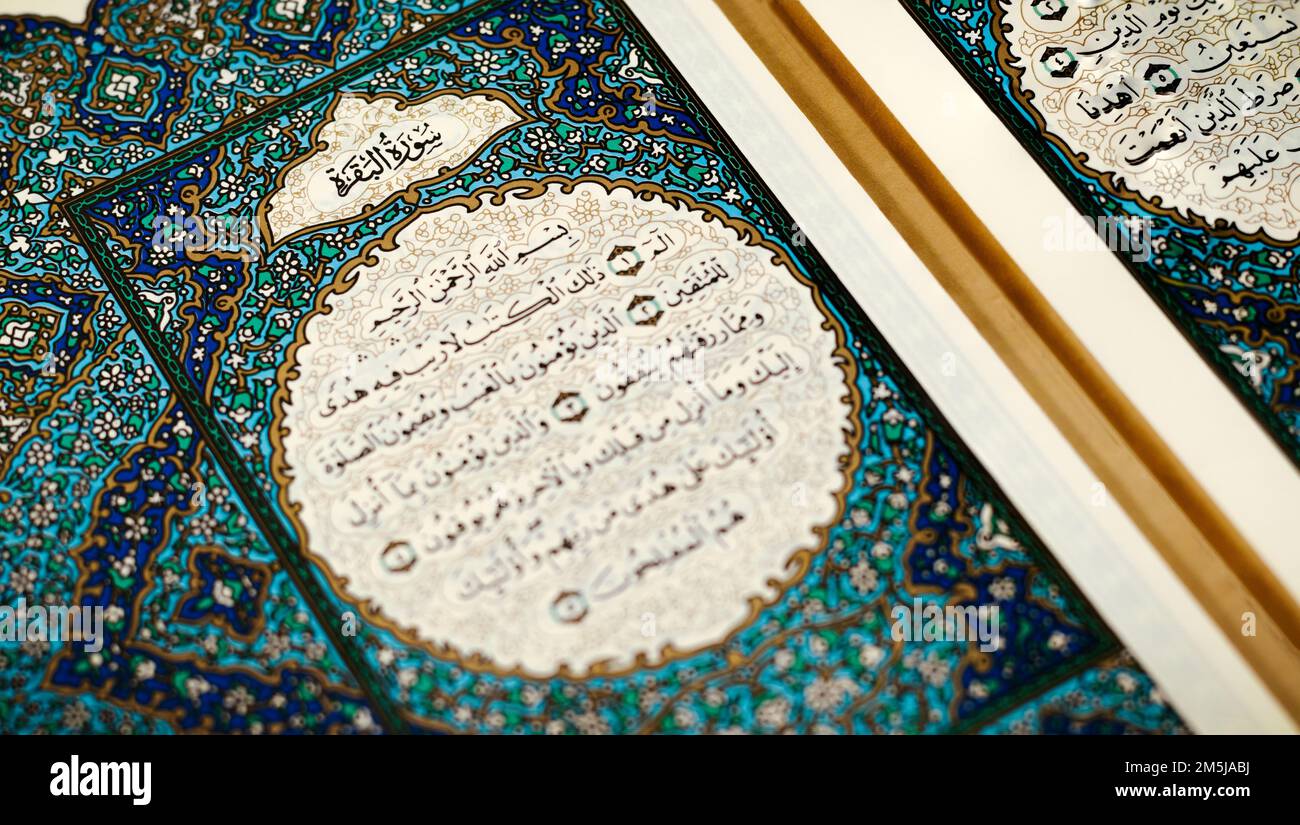 سُورَةُ الْبَقَرَةِ
بِسْمِ اللَّهِ الرَّحْمَنِ الرَّحِيمِ
الٓمٓ ١ ذَلِكَ الْكِتَبُ لَا رَيْبَ فِيهِ هُدًى
لِلْمُتَّقِينَ ٢ الَّذِينَ يُؤْمِنُونَ بِالْغَيْبِ وَيُقِيمُونَ الصَّلَوةَ
وَمِمَّا رَزَقْنَهُمْ يُنْفِقُونَ ٣ وَالَّذِينَ يُؤْمِنُونَ بِمَا أُنْزِلَ
إِلَيْكَ وَمَا أُنْزِلَ مِنْ قَبْلِكَ وَبِالْآخِرَةِ هُمْ يُوقِنُونَ ٤
أُولَئِكَ عَلَى هُدًى مِنْ رَبِّهِمْ وَأُولَئِكَ
هُمُ الْمُفْلِحُونَ ٥
يَوْمِ الدِّينِ ٤
نَسْتَعِينُ ٥ اهْدِنَا
صِرَطَ الَّذِينَ أَنْعَمْتَ
عَلَيْهِمْ
alamy
Image ID: 2M5JABJ
www.alamy.com